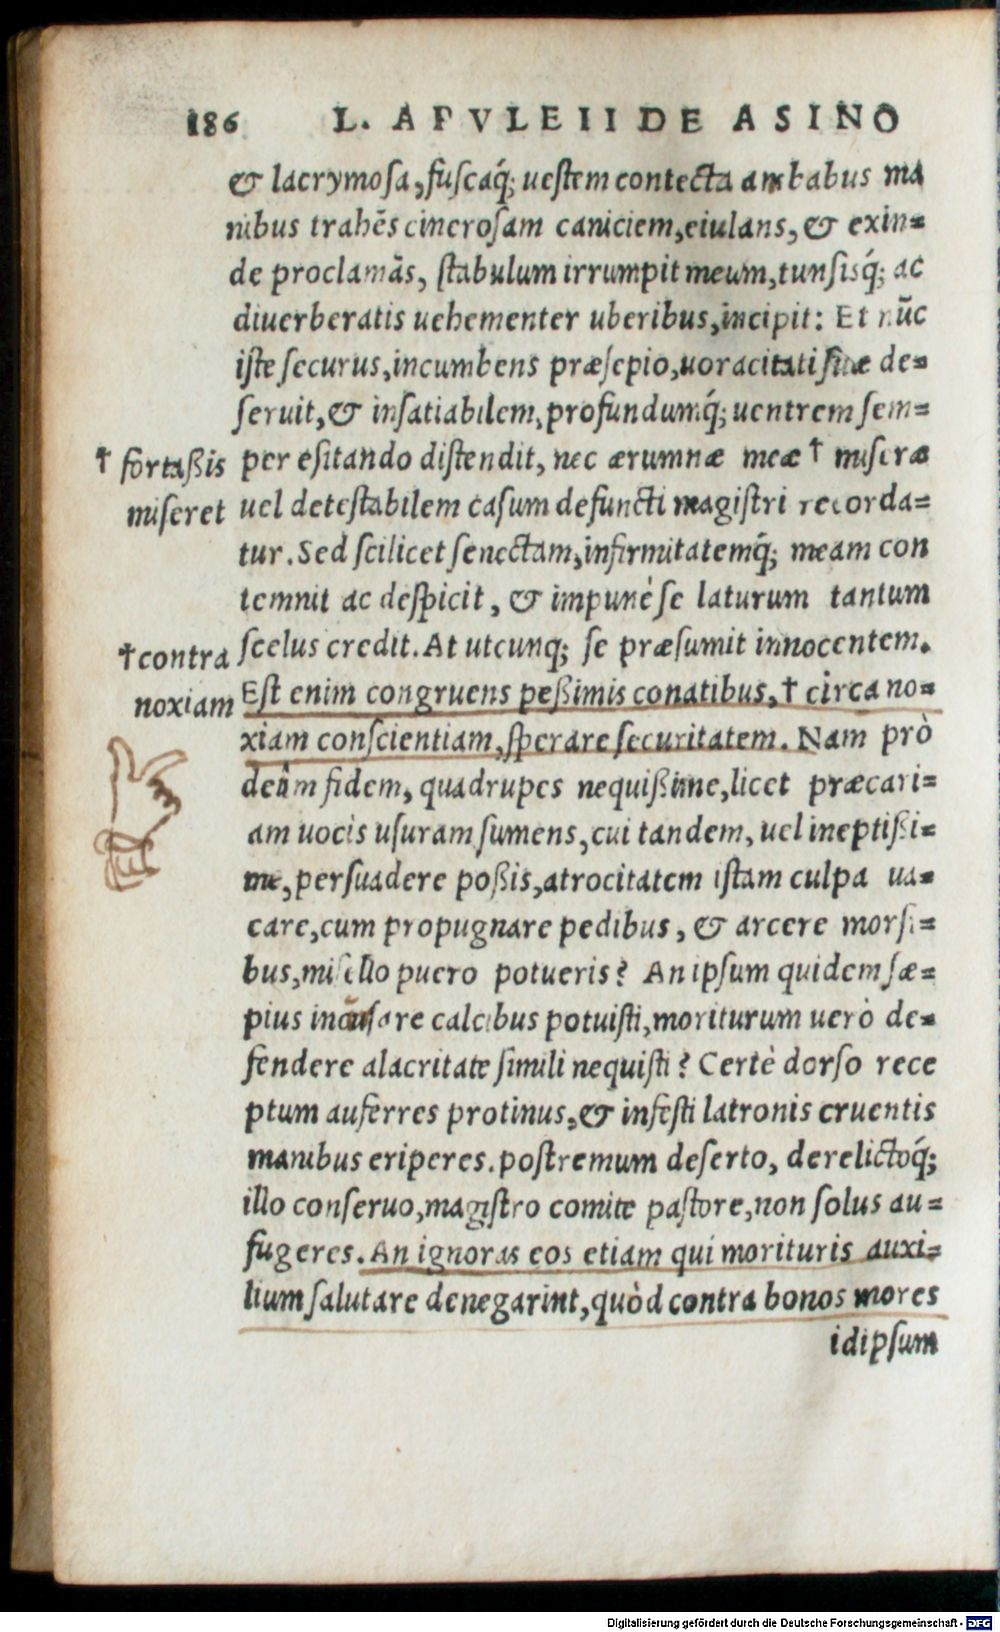 186 L. APVLEII DE ASINO
& lacrymosa, fuscaq́; uestem contecta ambabus ma
nibus trahẽs cinerosam caniciem, eiulans, & exin=
de proclamãs, stabulum irrumpit meum, tunsisq́; ac
diuerberatis uehementer uberibus, incipit: Et nũc
iste securus, incumbens præsepio, uoracitati suæ de=
seruit, & insatiabilem, profundumq́; uentrem sem=
† fortaßis per esitando distendit, nec ærumnæ meæ † miseræ
miseret uel detestabilem casum defuncti magistri recorda=
tur. Sed scilicet senectam, infirmitatemq́; meam con
temnit ac despicit, & impunè se laturum tantum
†contra scelus credit. At utcunq; se præsumit innocentem.
noxiam Est enim congruens peßimis conatibus, † circa no=
xiam conscientiam, sperare securitatem. Nam prò
deûm fidem, quadrupes nequißime, licet præcari=
am uocis usuram sumens, cui tandem, uel ineptißi=
me, persuadere poßis, atrocitatem istam culpa ua=
care, cum propugnare pedibus, & arcere morsi=
bus, misello puero potueris? An ipsum quidem sæ=
pius incursare calcibus potuisti, moriturum uerò de=
fendere alacritate simili nequisti? Certè dorso rece
ptum auferres protinus, & infesti latronis cruentis
manibus eriperes. postremum deserto, derelictoq́;
illo conseruo, magistro comite pastore, non solus au=
fugeres. An ignoras eos etiam qui morituris auxi=
lium salutare denegarint, quòd contra bonos mores
idipsum
Digitalisierung gefördert durch die Deutsche Forschungsgemeinschaft - DFG